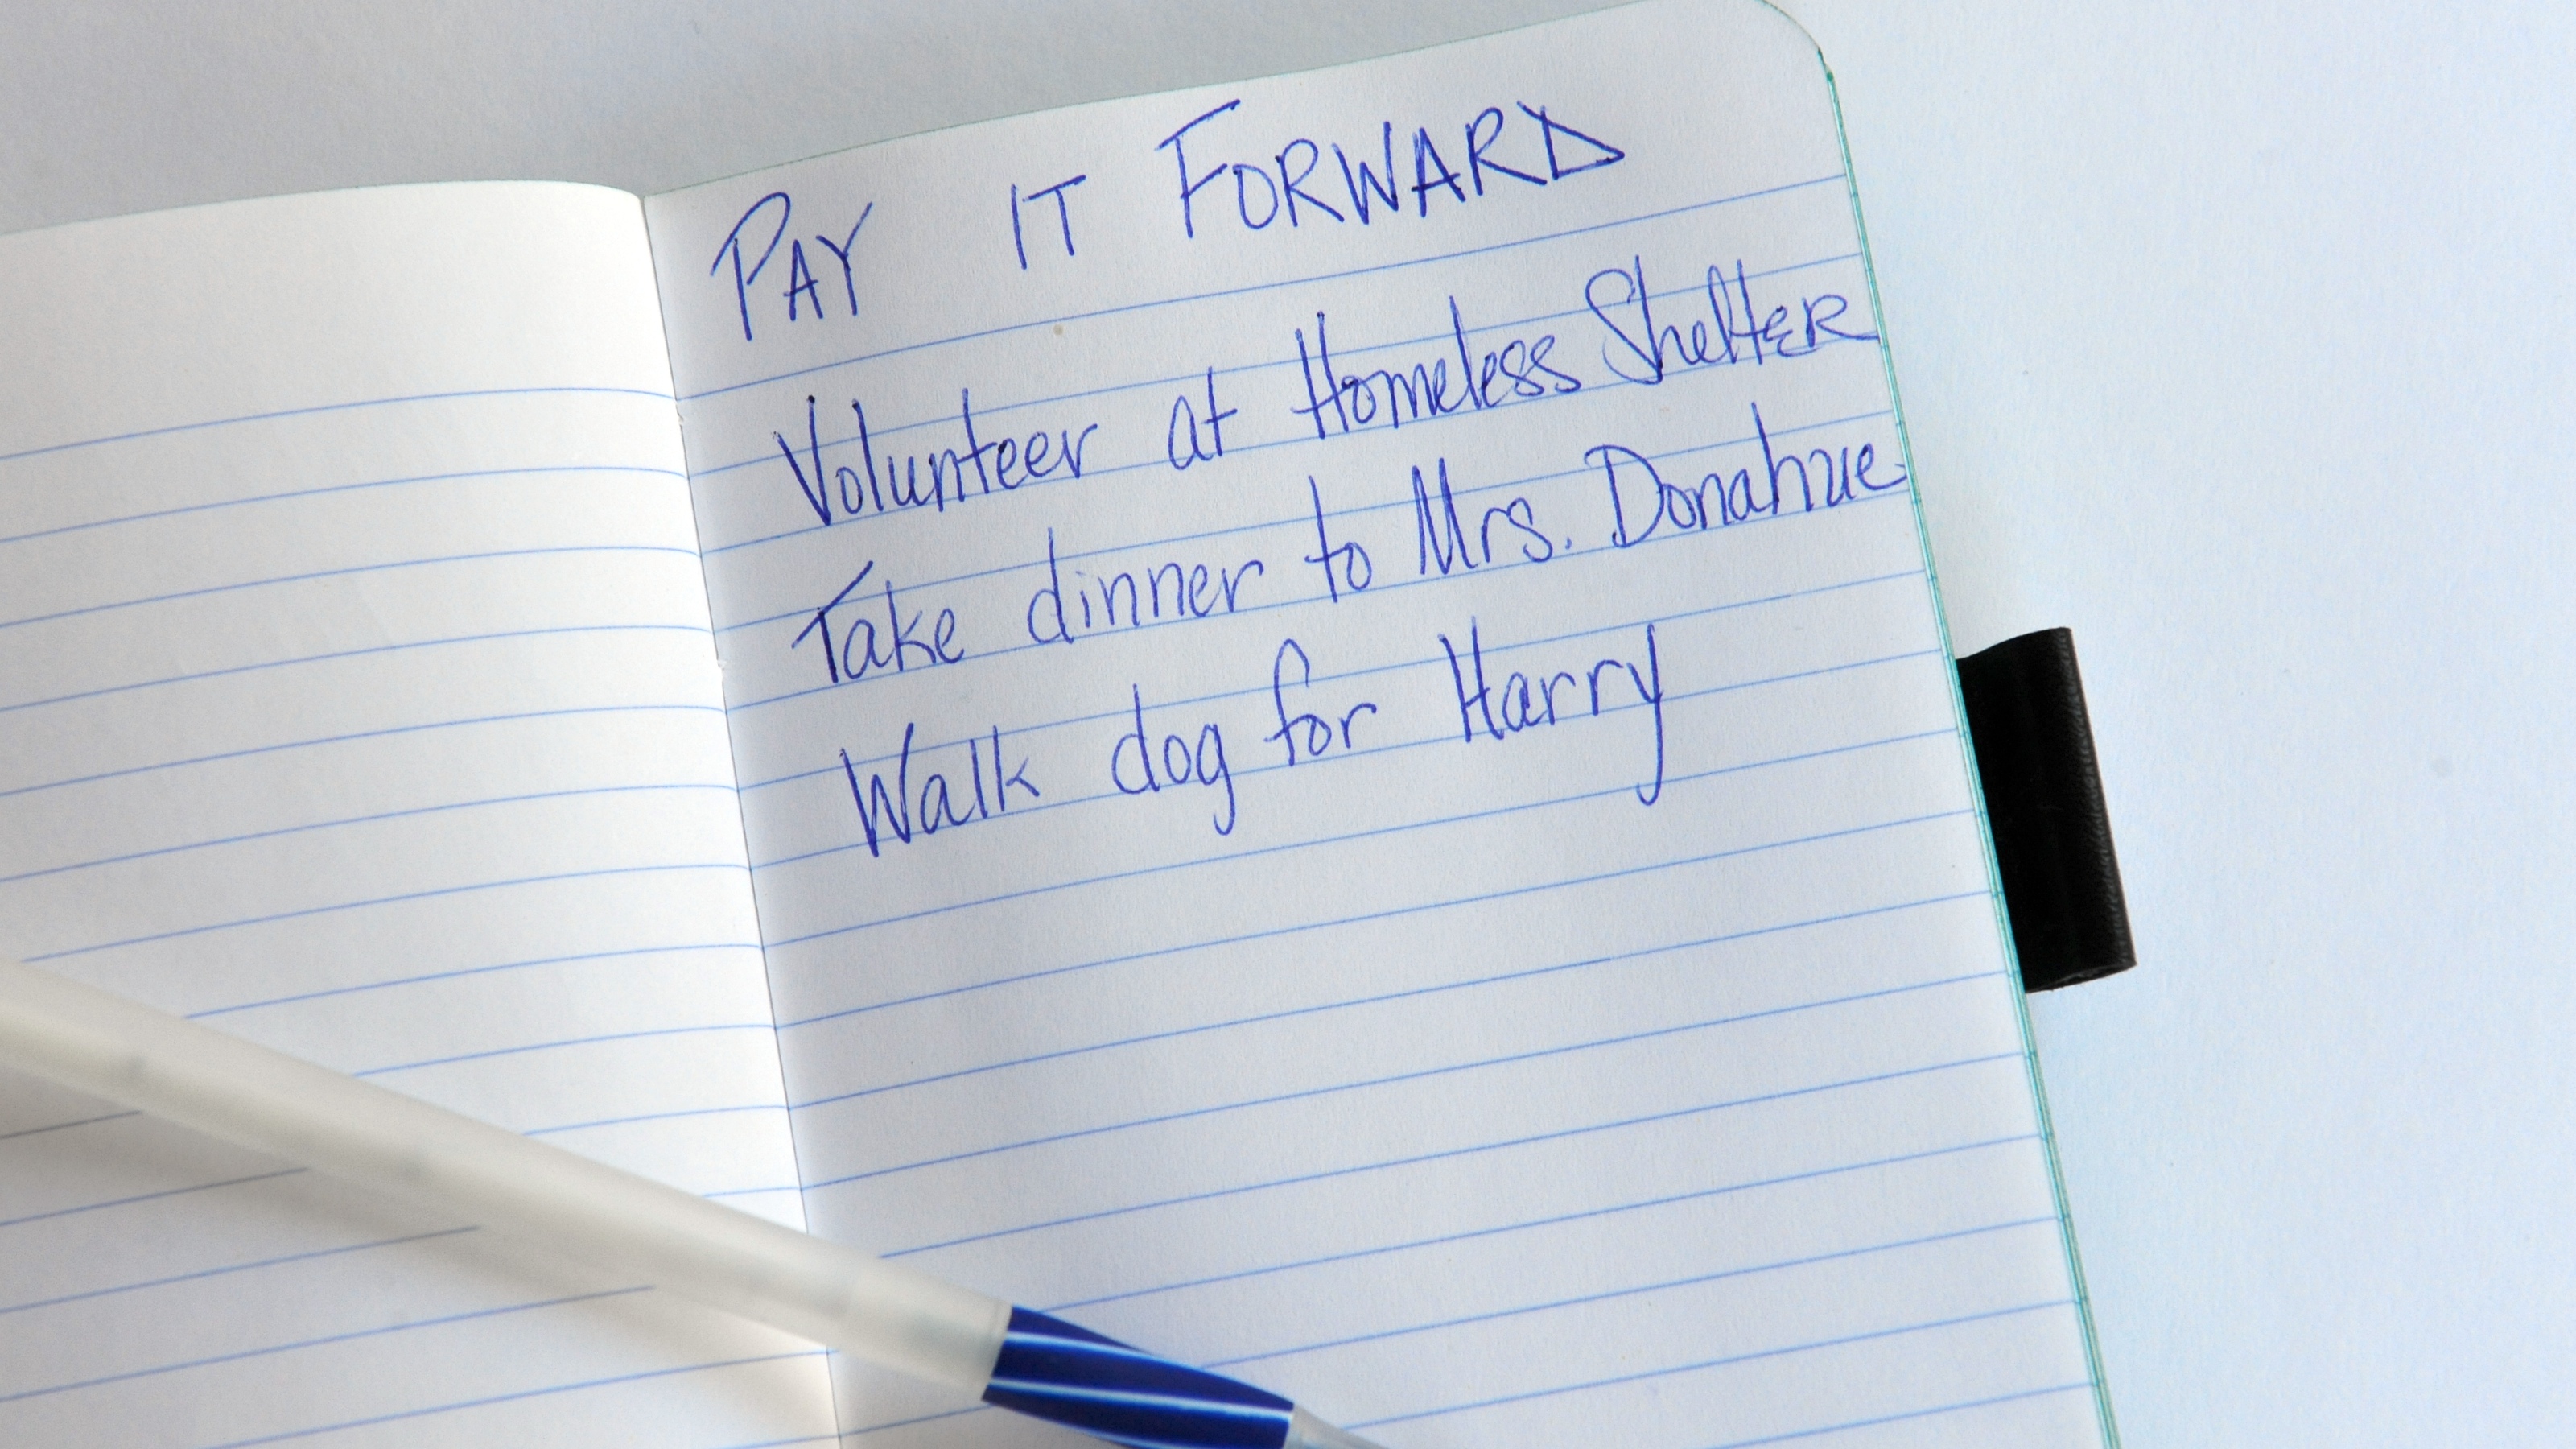 PAY IT FORWARD
Volunteer at Homeless Shelter
Take dinner to Mrs. Donahue
Walk dog for Harry